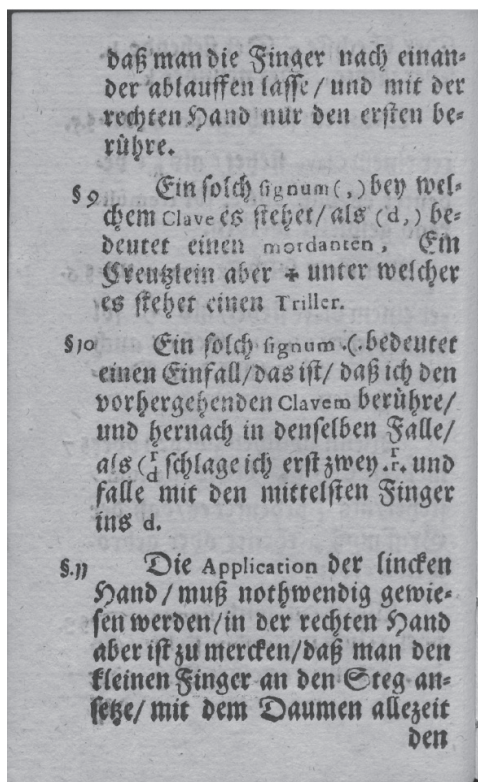 daß man die Finger nach einan-
der ablauffen lasse / und mit der
rechten Hand nur den ersten be-
rühre.
§ 9 Ein solch signum (,) bey wel-
chem Clave es stehet / als (d,) be-
deutet einen mordanten, Ein
Creutzlein aber ✠ unter welcher
es stehet einen Triller.
§ 10 Ein solch signum .(. bedeutet
einen Einfall / das ist / daß ich den
vorhergehenden Clavem berühre /
und hernach in denselben Falle /
als (r/d schlage ich erst zwey .r/r. und
falle mit den mittelsten Finger
ins d.
§. 11 Die Application der lincken
Hand / muß nothwendig gewie-
sen werden / in der rechten Hand
aber ist zu mercken / daß man den
kleinen Finger an den Steg an-
setze / mit dem Daumen allezeit
den